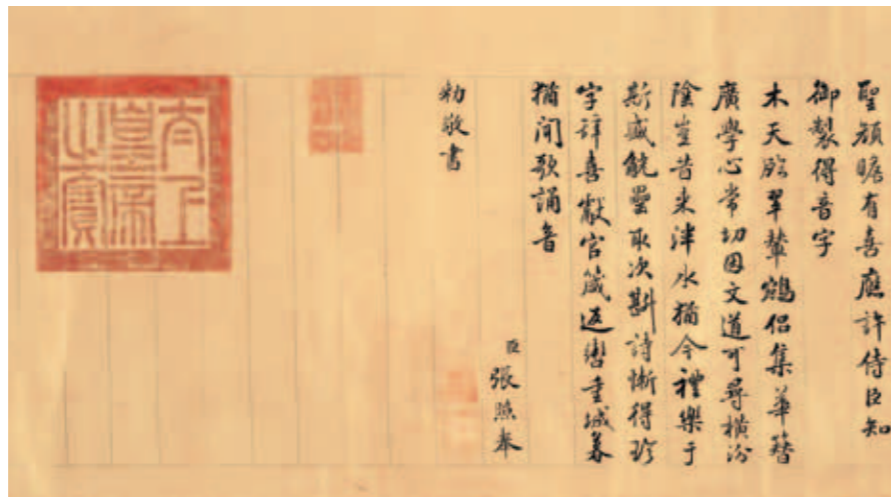 聖顏瞻有喜應許侍臣知
御製得音字
木天臨翠輦鵷侶集華簪
廣學心常切因文道可尋橫汾
陰豈昔來泮水猶今禮樂于
斯盛觥罍取次斟詩慚得珍
字辭喜獻官箴返轡重城暮
猶聞歌誦音
臣張照奉
勅敬書
太上
皇帝
之寶